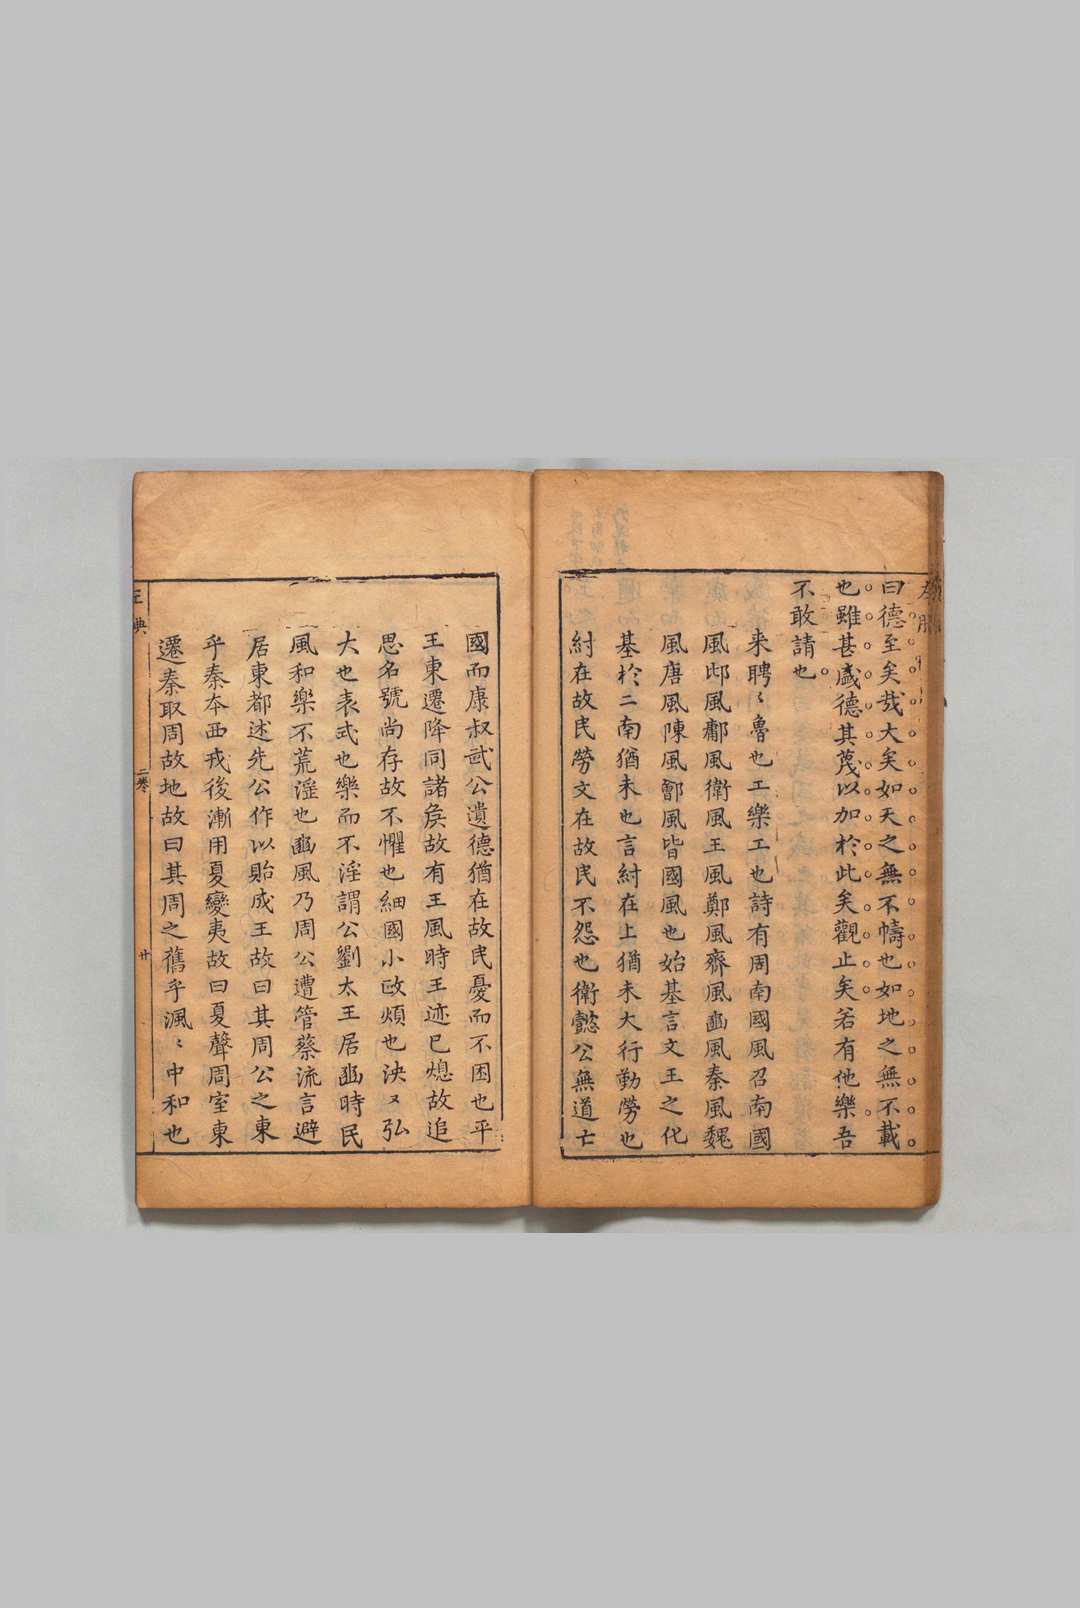 曰德至矣哉大矣如天之無不幬也如地之無不載
也雖甚盛德其蔑以加於此矣觀止矣若有他樂吾
不敢請也
来聘〻魯也工樂工也詩有周南國風召南國
風邶風鄘風衛風王風鄭風齊風豳風秦風魏
風唐風陳風鄶風皆國風也始基言文王之化
基於二南猶未也言紂在上猶未大行勤勞也
紂在故民勞文在故民不怨也衛懿公無道亡
國而康叔武公遺德猶在故民憂而不困也平
王東遷降同諸侯故有王風時王迹已熄故追
思名號尚存故不懼也細國小政煩也泱〻弘
大也表式也樂而不淫謂公劉太王居豳時民
風和樂不荒淫也豳風乃周公遭管蔡流言避
居東都述先公作以貽成王故曰其周公之東
乎秦夲西戎後漸用夏變夷故曰夏聲周室東
遷秦取周故地故曰其周之舊乎渢〻中和也
二卷
廿